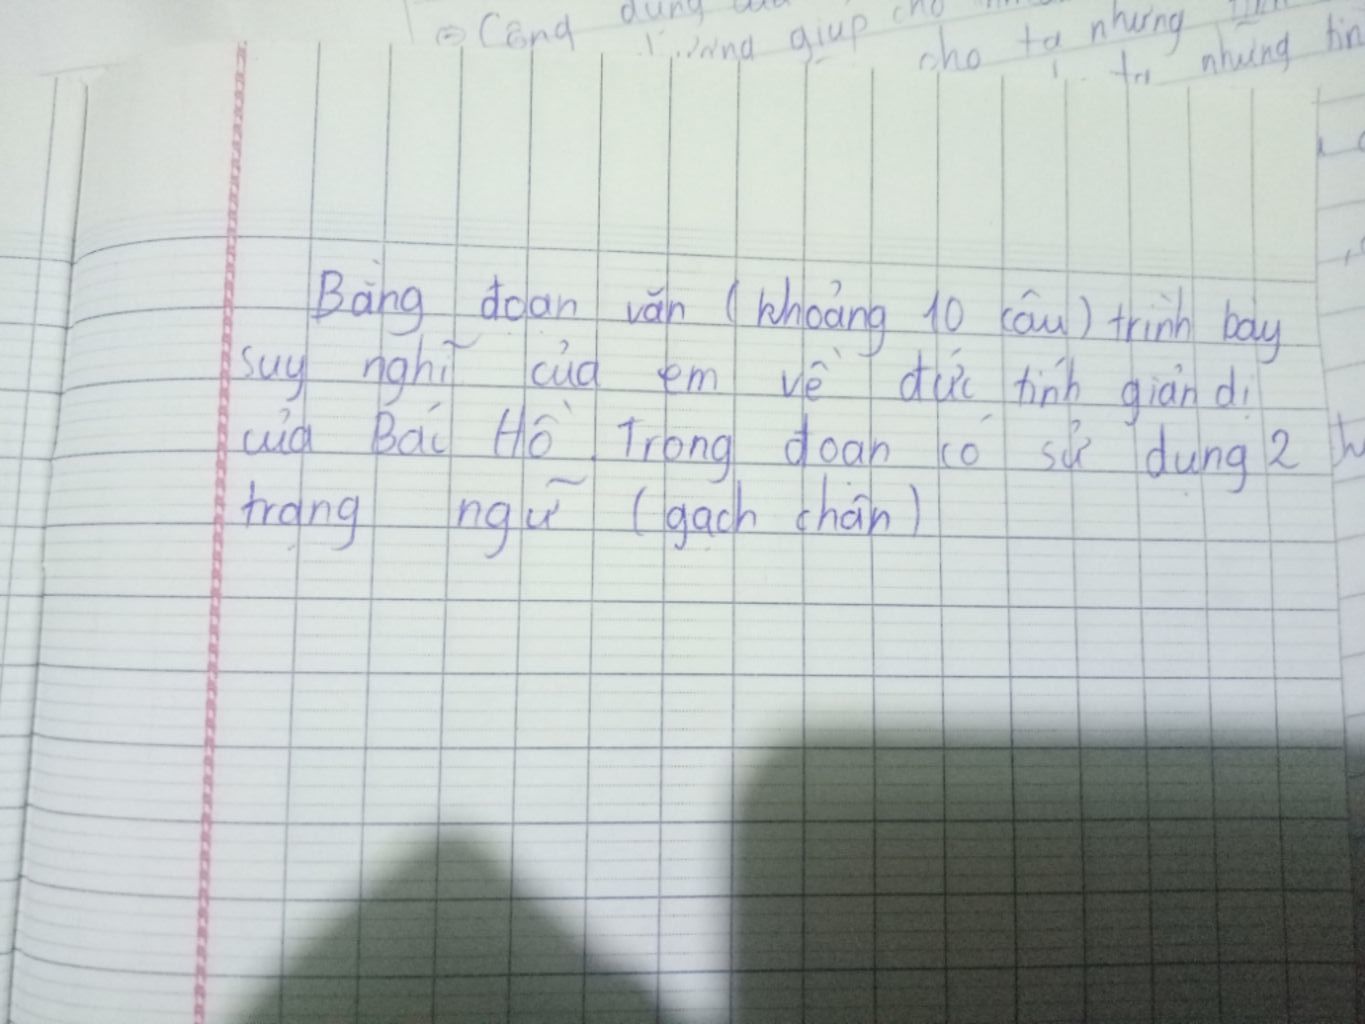 ⊝ Công dụng
giúp cho
cho ta những
những tin
Bằng đoạn văn (khoảng 10 câu) trình bày
suy nghĩ của em về đức tính giản dị
của Bác Hồ. Trong đoạn có sử dụng 2
trạng ngữ (gạch chân)